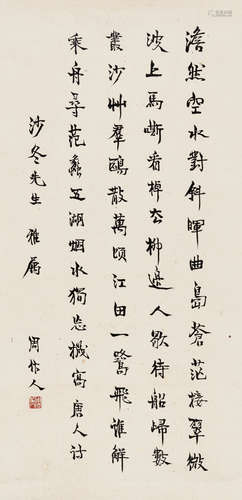 澹然空水對斜暉曲島蒼茫接翠微
波上馬嘶看棹去柳邊人歇待船歸數
叢沙艸羣鷗散萬頃江田一鷺飛誰解
乘舟尋范蠡五湖烟水獨忘機寫唐人詩
沙冬先生 雅屬
周作人